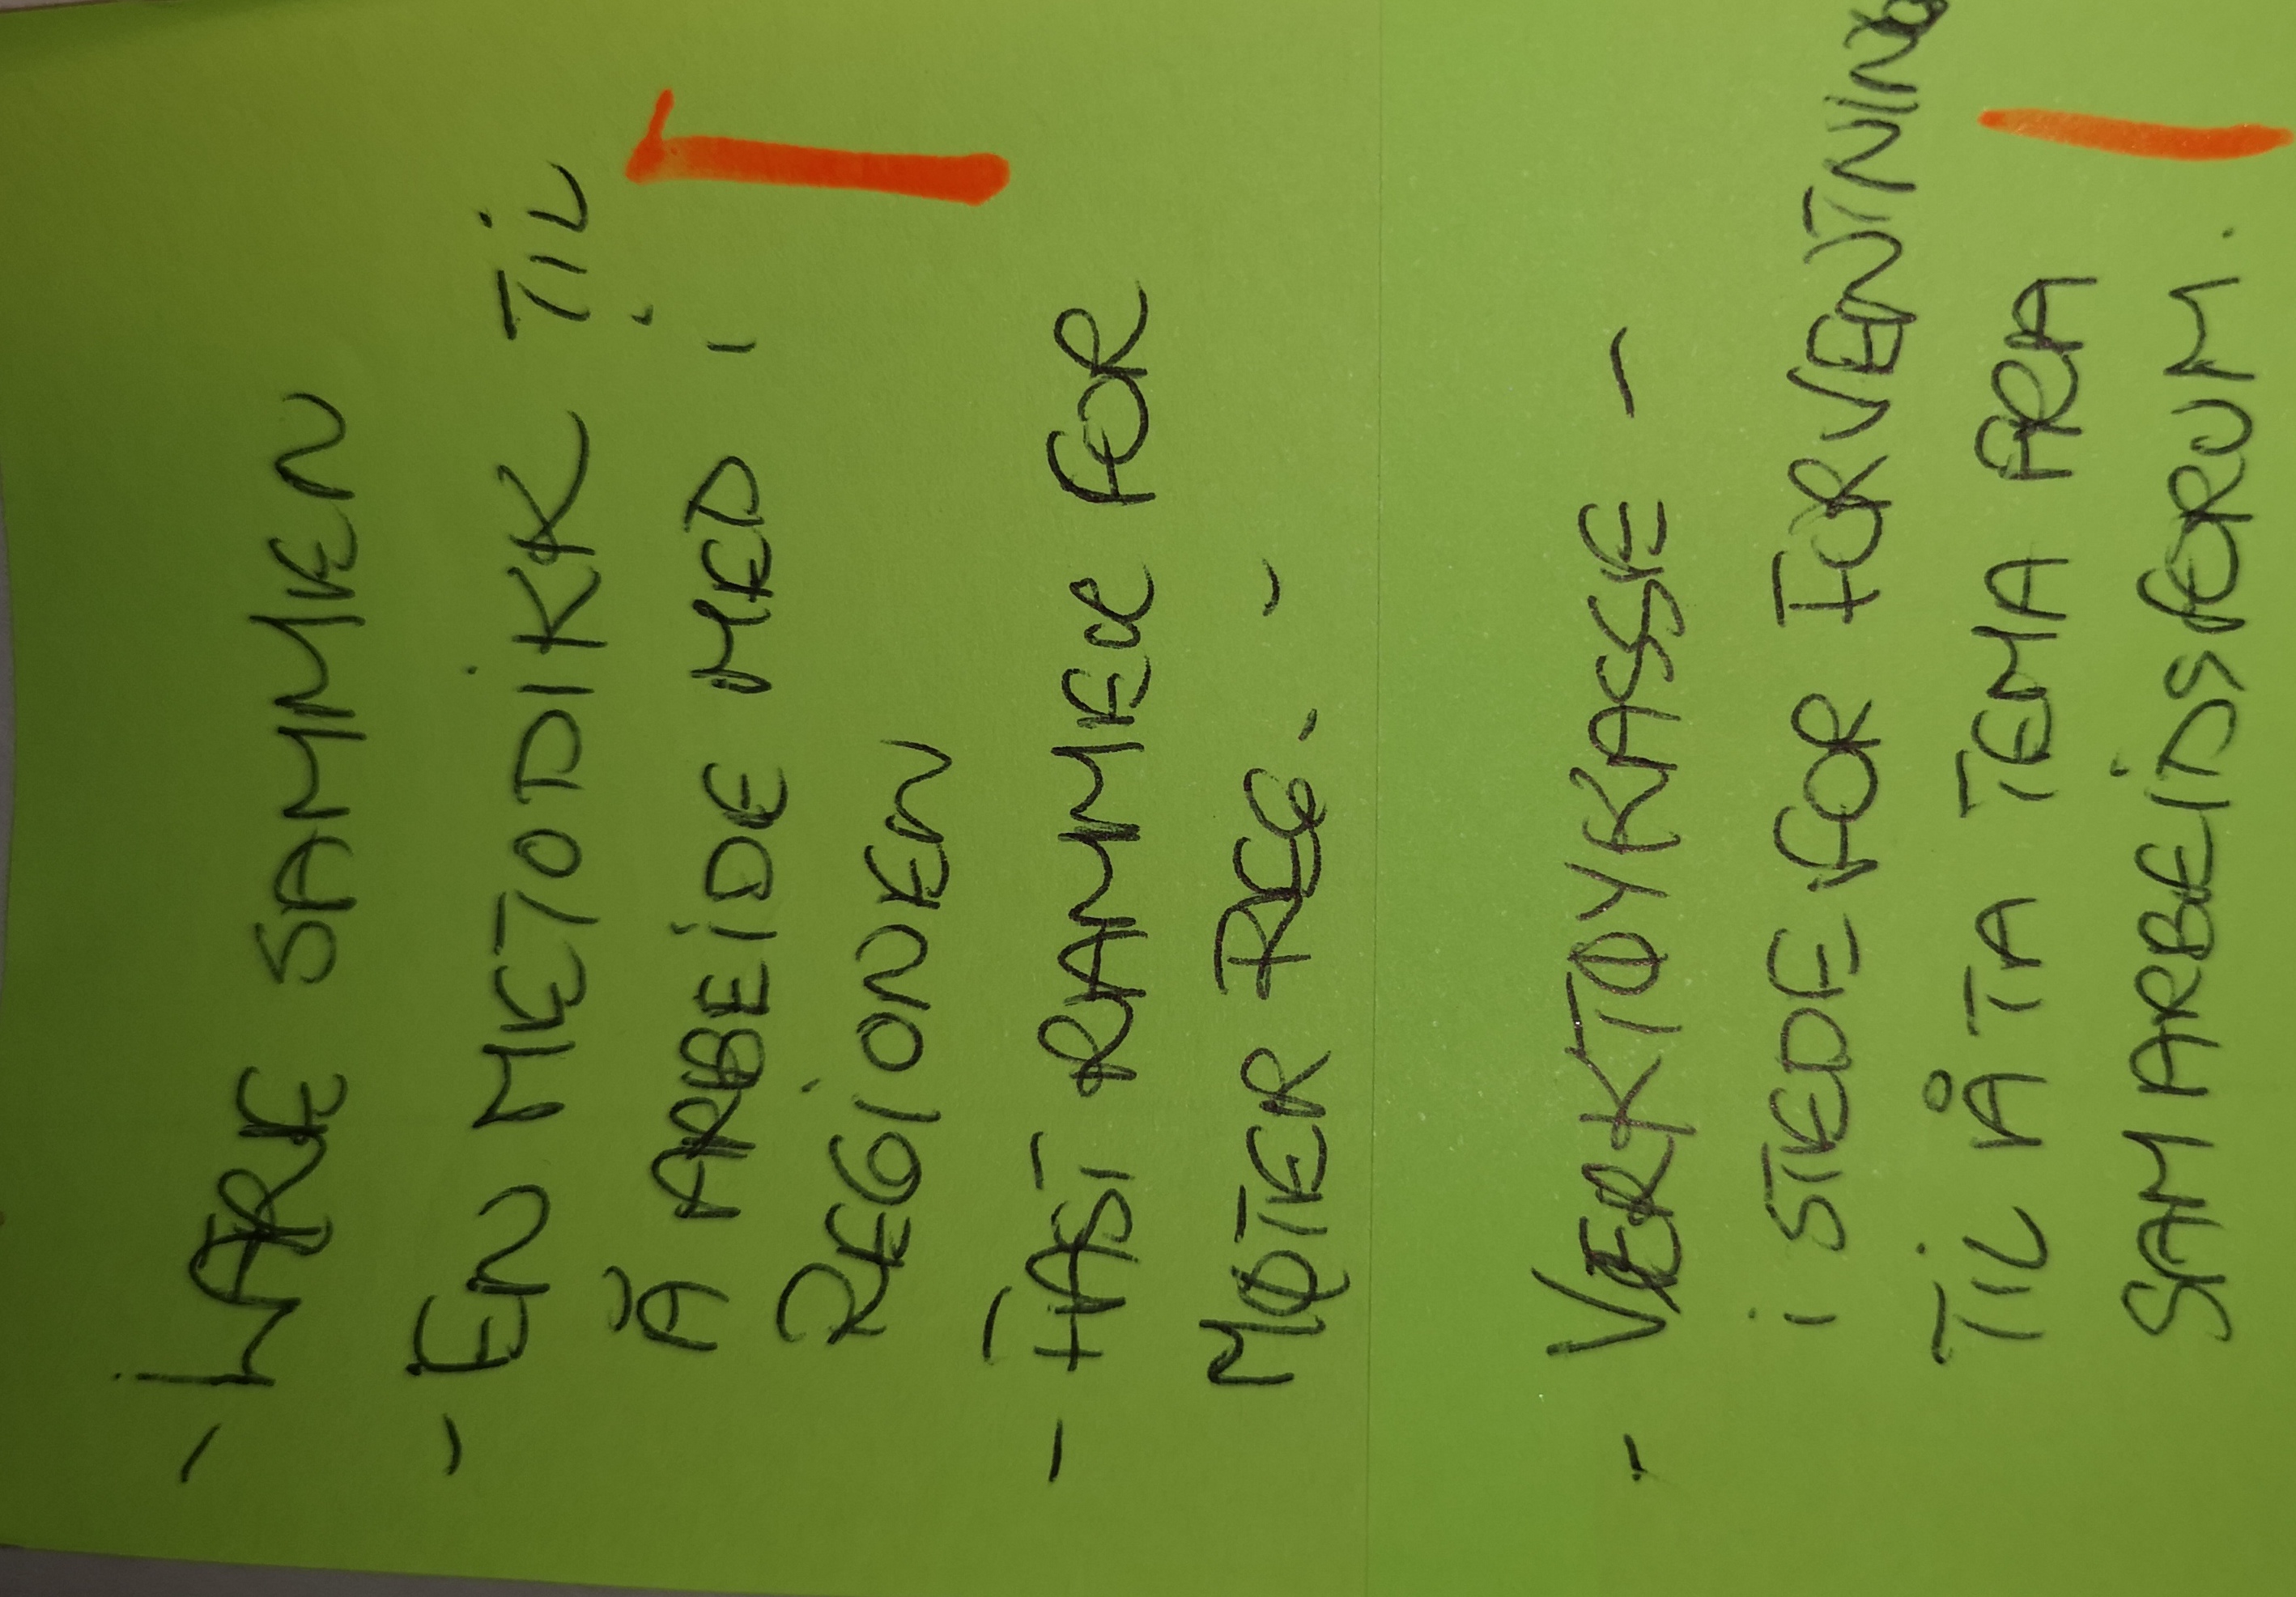 - LÆRE SAMMEN
- EN METODIKK TIL
Å ARBEIDE MED i
REGIONEN
- FAST RAMMER FOR
MØTER REG. -
- VERKTØYKASSE -
i STEDE FOR FORVENTNING
TIL Å TA TEMA FRA
SAMARBEIDSFORUM.